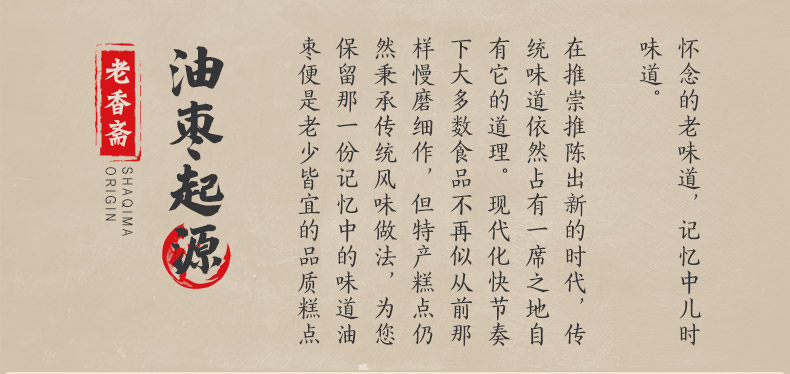 怀念的老味道，记忆中儿时
味道。
在推崇推陈出新的时代，传
统味道依然占有一席之地自
有它的道理。现代化快节奏
下大多数食品不再似从前那
样慢磨细作，但特产糕点仍
然秉承传统风味做法，为您
保留那一份记忆中的味道油
枣便是老少皆宜的品质糕点
油枣起源
老香斋
SHAQIMA
ORIGIN